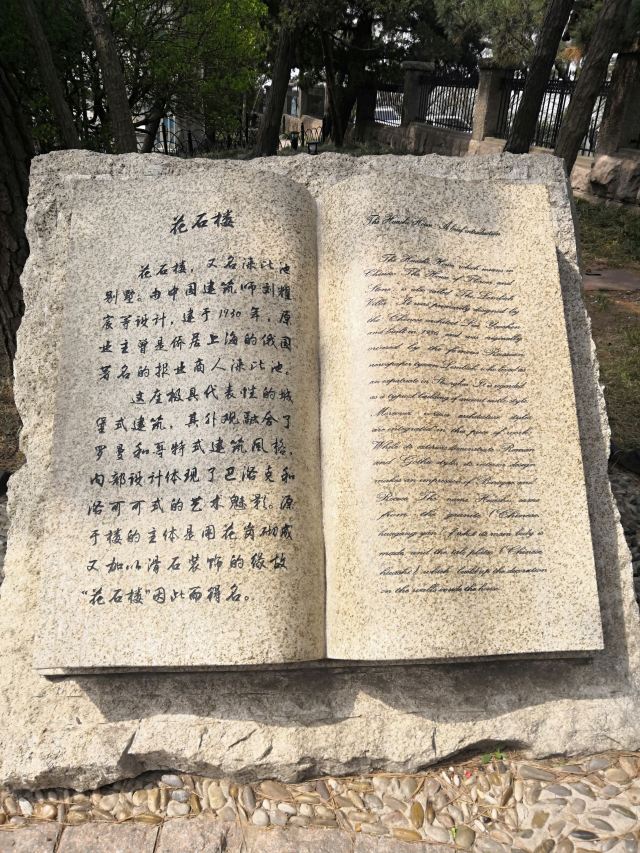 花石楼
花石楼，又名涞比池
别墅。由中国建筑师刘耀
宸等设计，建于1930年，原
业主曾是侨居上海的俄国
著名的报业商人涞比池。
这座极具代表性的城
堡式建筑，其外观融合了
罗曼和哥特式建筑风格，
内部设计体现了巴洛克和
洛可可式的艺术魅影。源
于楼的主体是用花岗砌成
又加以滑石装饰的缘故
“花石楼”因此而得名。
The Huashi House: A brief
The Huashi House, which means in
Chinese, The House of Flowers and
Stone, is also called The
Villa. It was designed by
the Chinese architect
and built in 1930, and was originally
owned by the Russian
newspaper who lived as
an expatriate in Shanghai. It is regarded
as a typical building of castle style.
various architecture styles
are integrated in the form of castle.
While its exterior demonstrate Roman
and Gothic styles, its interior design
makes an impression of Baroque and
Rococo. The name Huashi, came
from the granite (Chinese
huagang yan) of which its main body is
made and the talc plates (Chinese
huashi) which build up the decoration
on the walls inside the house.